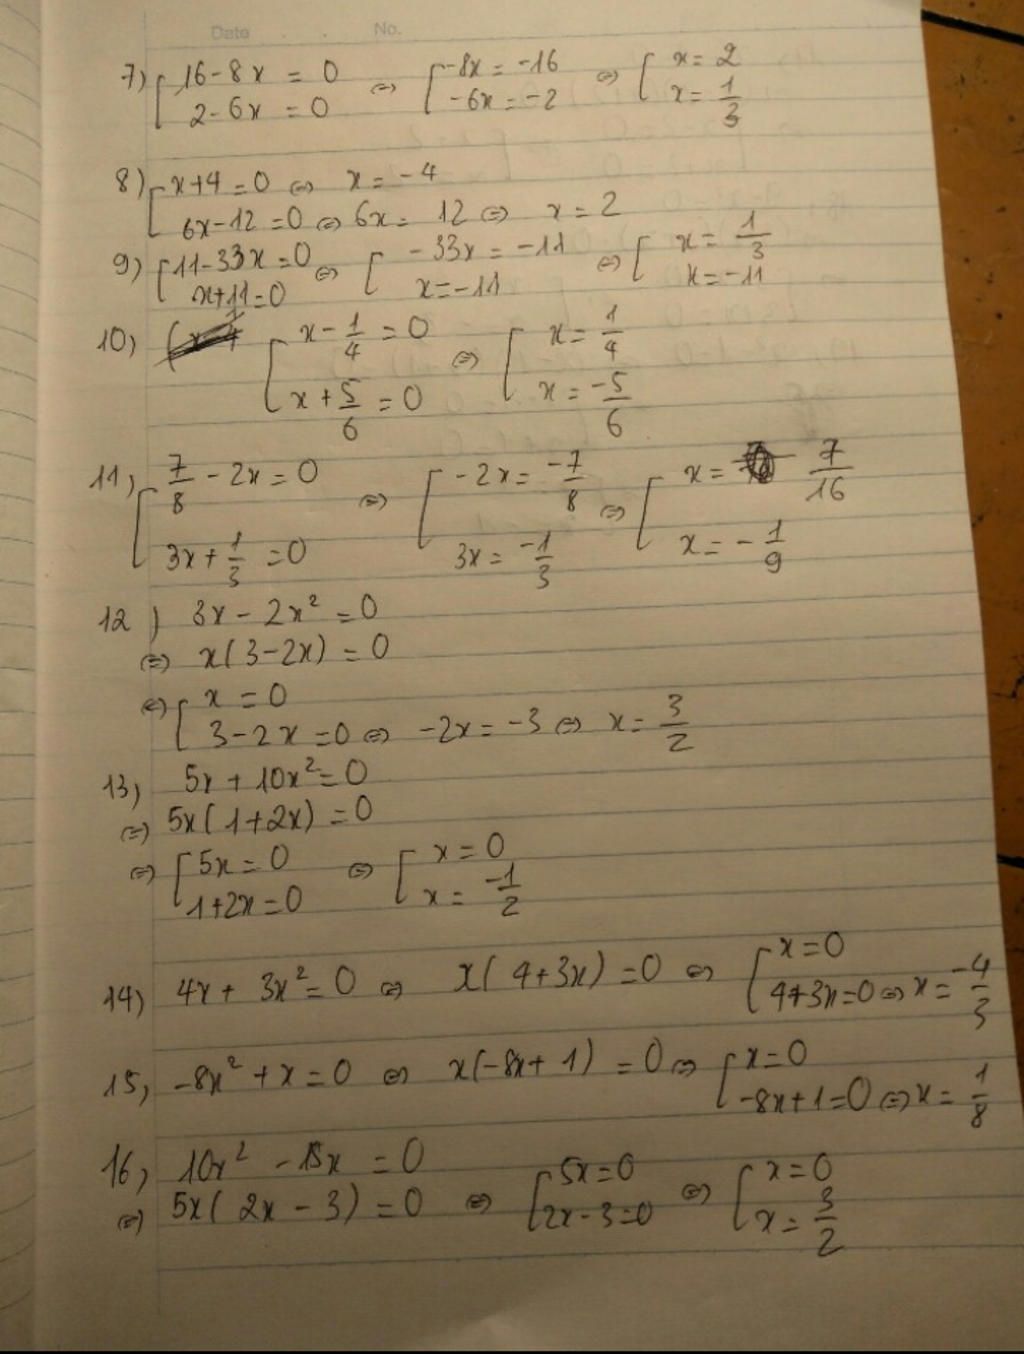 Date . . No.
7) [16-8x = 0 ⇔ [-8x = -16 ⇔ [x = 2
2-6x = 0 -6x = -2 x = 1/3
8) [x+4 = 0 ⇔ x = -4
6x-12 = 0 ⇔ 6x = 12 ⇔ x = 2
9) [11-33x = 0 ⇔ [-33x = -11 ⇔ [x = 1/3
x+11 = 0 x = -11 x = -11
10) [x - 1/4 = 0 ⇔ [x = 1/4
x + 5/6 = 0 x = -5/6
11) [7/8 - 2x = 0 ⇔ [-2x = -7/8 ⇔ [x = 7/16
3x + 1/3 = 0 3x = -1/3 x = - 1/9
12) 3x - 2x² = 0
⇔ x(3-2x) = 0
⇔ [x = 0
3-2x = 0 ⇔ -2x = -3 ⇔ x = 3/2
13) 5x + 10x² = 0
⇔ 5x(1+2x) = 0
⇔ [5x = 0 ⇔ [x = 0
1+2x = 0 x = -1/2
14) 4x + 3x² = 0 ⇔ x(4+3x) = 0 ⇔ [x = 0
4+3x = 0 ⇔ x = -4/3
15) -8x² + x = 0 ⇔ x(-8x+1) = 0 ⇔ [x = 0
-8x+1 = 0 ⇔ x = 1/8
16) 10x² - 15x = 0
⇔ 5x(2x - 3) = 0 ⇔ [5x = 0 ⇔ [x = 0
2x-3 = 0 x = 3/2